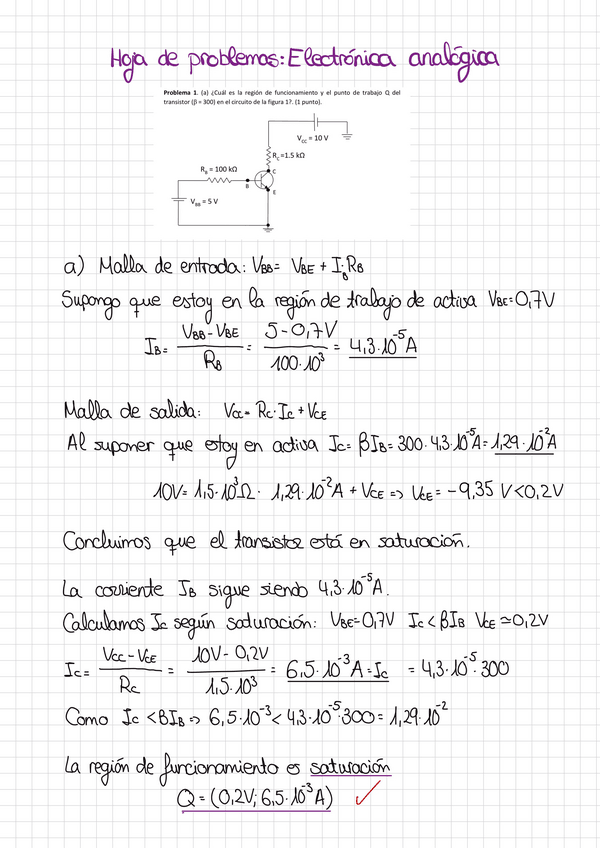 Hoja de problemas: Electrónica analógica
Problema 1. (a) ¿Cuál es la región de funcionamiento y el punto de trabajo Q del
transistor (β = 300) en el circuito de la figura 1?. (1 punto).
V_CC = 10 V
R_C =1.5 kΩ
R_B = 100 kΩ
C
B
E
V_BB = 5 V
a) Malla de entrada: V_BB = V_BE + I_B·R_B
Supongo que estoy en la región de trabajo de activa V_BE = 0,7V
I_B = (V_BB - V_BE) / R_B = (5 - 0,7V) / (100·10³) = 4,3·10⁻⁵ A
Malla de salida: V_CC = R_C·I_C + V_CE
Al suponer que estoy en activa I_C = βI_B = 300·4,3·10⁻⁵A = 1,29·10⁻²A
10V = 1,5·10³Ω · 1,29·10⁻²A + V_CE => V_CE = -9,35 V < 0,2V
Concluimos que el transistor está en saturación.
La corriente I_B sigue siendo 4,3·10⁻⁵A.
Calculamos I_C según saturación: V_BE = 0,7V I_C < βI_B V_CE ≃ 0,2V
I_C = (V_CC - V_CE) / R_C = (10V - 0,2V) / (1,5·10³) = 6,5·10⁻³ A = I_C = 4,3·10⁻⁵·300
Como I_C < βI_B => 6,5·10⁻³ < 4,3·10⁻⁵·300 = 1,29·10⁻²
La región de funcionamiento es saturación
Q = (0,2V; 6,5·10⁻³A) ✓